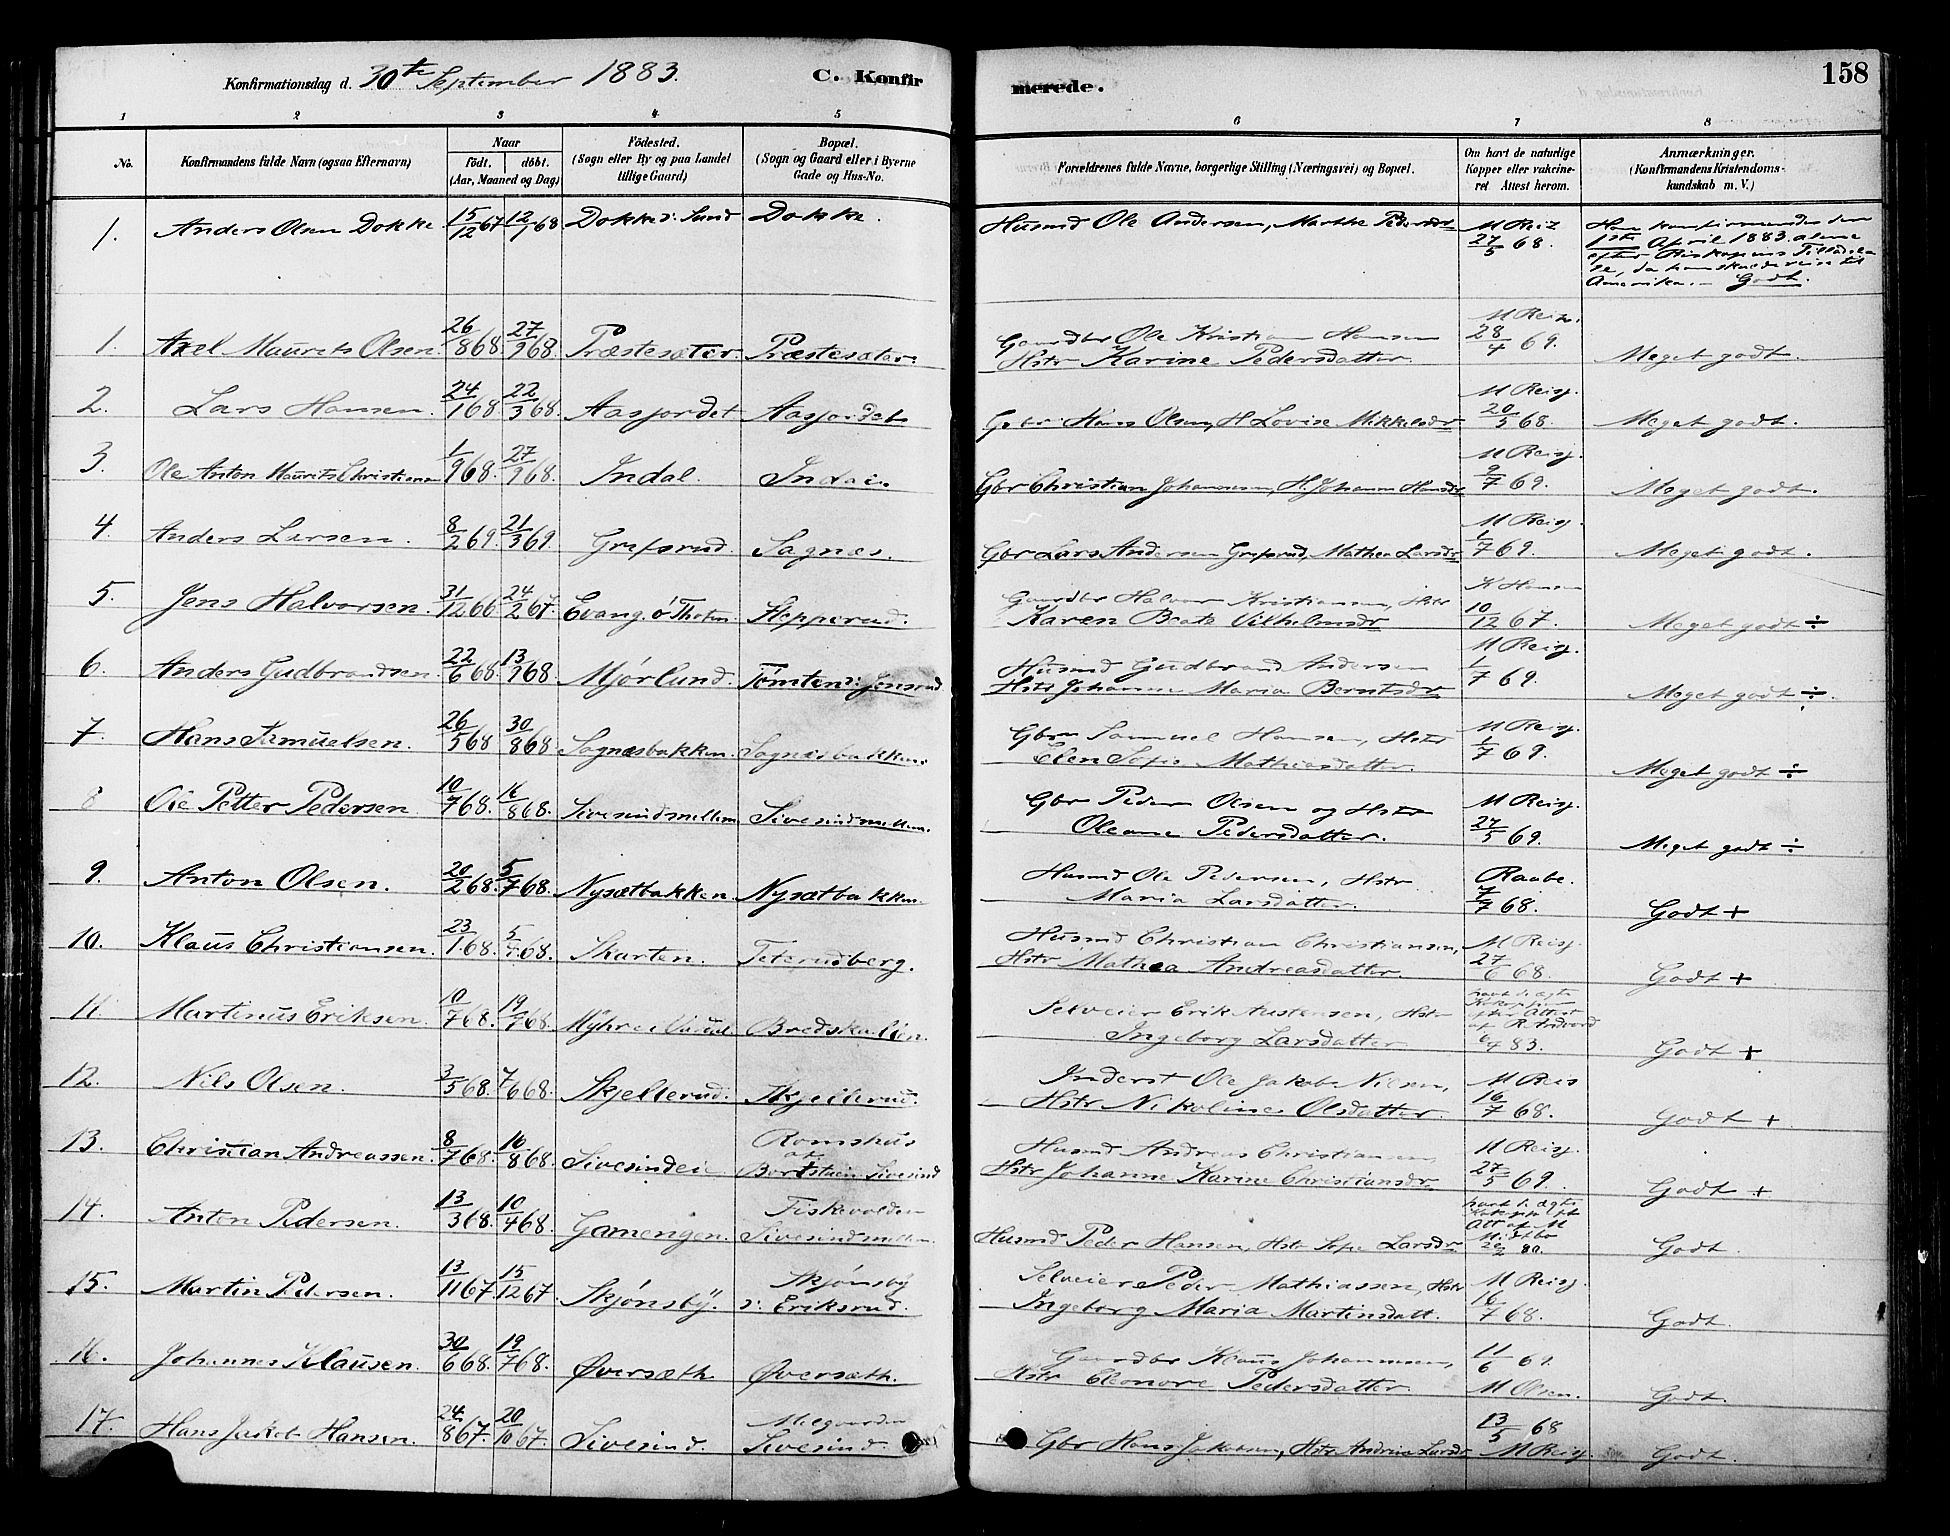 Konfirmationsdag d. 30te September 1883.
C. Konfir
merede.
158
1 2 3 4 5 6 7 8
No.
Konfirmandens fulde Navn (ogsaa Efternavn)
Naar
födt. döbt.
(Aar, Maaned og Dag)
Födested.
(Sogn eller By og paa Landet
tillige Gaard)
Bopæl.
(Sogn og Gaard eller i Byerne
Gade og Hus-No.
Forældrenes fulde Navne, borgerlige Stilling (Næringsvei) og Bopæl.
Om havt de naturlige
Kopper eller vakcine-
ret Attest herom.
Anmærkninger.
(Konfirmandens Kristendoms-
kundskab m. V.)
1. Anders Olsen Dokke 15/12 67 12/1 68 Dokke i Lund Dokke. Husmd Ole Andersen, Marthe Pedersdt M Reiz 27/5 68.
Han konfirmandes den
1ste April 1883 alene
efter Biskopens Tilladel
se, da han skulde reise til
Amerika. – Godt.
1. Axel Maurits Olsen 26/8 68 27/9 68 Præstesæter. Præstesæter. Gaardbr Ole Kristian Hansen
Hstr Karine Pedersdatter. M Reiz. 28/4 69. Meget godt.
2. Lars Hansen. 24/1 68. 22/3 68. Aasjordet Aasjordet Gbr Hans Olsen, H Lovise Mikkelsdr M Reisz. 20/5 68. Meget godt.
3. Ole Anton Maurits Christiansen 1/9 68. 27/9 68. Indal. Indal. Gbr Christian Johannesen, H. Johanne Hansdr M Reisz. 9/7 69. Meget godt.
4. Anders Larsen. 8/2 69. 21/3 69. Grefsrud. Sagnæs. Gbr Lars Andersen Grefsrud, Mathea Larsdr M Reisz. 1/7 69. Meget godt.
5. Jens Halvorsen. 31/12 66 24/2 67. Evang. Ö Thoten Klepperud. Gaardbr Halvor Kristiansen, Hstr
Karen Beate Vilhelmsdr K Hansen 10/12 67. Meget godt ÷
6. Anders Gudbrandsen. 22/6 68. 13/9 68. Mjörlund. Tömten i Jensrud Husmd Gudbrand Andersen
Hstr Johanne Maria Berntsdr M Reisz. 1/7 69. Meget godt ÷.
7. Hans Samuelsen. 26/5 68 30/8 68. Sagnæsbakken. Sagnæsbakken. Gbr Samuel Hansen, Hstr
Elen Sofie Mathiasdatter. M Reisz. 1/7 69. Meget godt ÷
8 Ole Petter Pedersen. 10/7 68. 16/8 68. Sivesindmellem. Sivesindmellem. Gbr Peder Olsen og Hstr
Oleane Pedersdatter. M Reisz. 27/5 69. Meget godt ÷
9. Anton Olsen. 20/2 68. 5/7 68. Nysætbakken Nysætbakken. Husmd Ole Pedersen, Hstr
Maria Larsdatter. Raabe. 7/7 68. Godt +
10. Klaus Christiansen. 23/1 68. 5/7 68. Skarten. Teterudberg. Husmd Christian Christiansen,
Hstr Mathea Andreasdatter. M Reisz. 27/6 68. Godt +
11. Martinus Eriksen. 10/7 68. 19/7 68. Myhre Bredskallien. Selveier Erik Austensen, Hstr
Ingeborg Larsdatter havt de ægte
efter Attest
af R. 6/4 83. Godt +
12. Nils Olsen. 3/5 68. 7/6 68. Skjellerud. Skjellerud. Inderst Ole Jakob Nilsen,
Hstr Nikoline Olsdatter. M Reis 16/7 68. Godt +
13. Christian Andreassen. 8/7 68. 16/8 68. Sivesindeie Romshus
Sivesind Husmd Andreas Christiansen,
Hstr Johanne Karine Christiansdr M Reisz. 27/5 69. Godt +
14. Anton Pedersen. 13/3 68. 10/4 68. Gamengen. Fiskevolden
Sivesindmellem. Husmd Peder Hansen, Hstr Sofie Larsdr havt de ægte
Att af M
Midtbö Godt.
15. Martin Pedersen. 13/11 67 15/12 67. Skjönsby. Skjönsby
i Eriksrud. Selveier Peder Mathiassen, Hstr
Ingeborg Maria Martinsdatt. M Reisz. 16/7 68. Godt.
16. Johannes Klausen. 30/6 68. 19/7 68. Øversæth. Øversæth. Gaardbr Klaus Johannesen,
Hstr Eleonore Pedersdatter. 11/6 69. M Olsen. Godt.
17. Hans Jakob Hansen. 24/8 67. 20/10 67. Sivesind. Melgaarden
Sivesind. Gbr Hans Jakobsen, Hstr Andrine Larsdr 13/5 68 M Reisz. Godt.